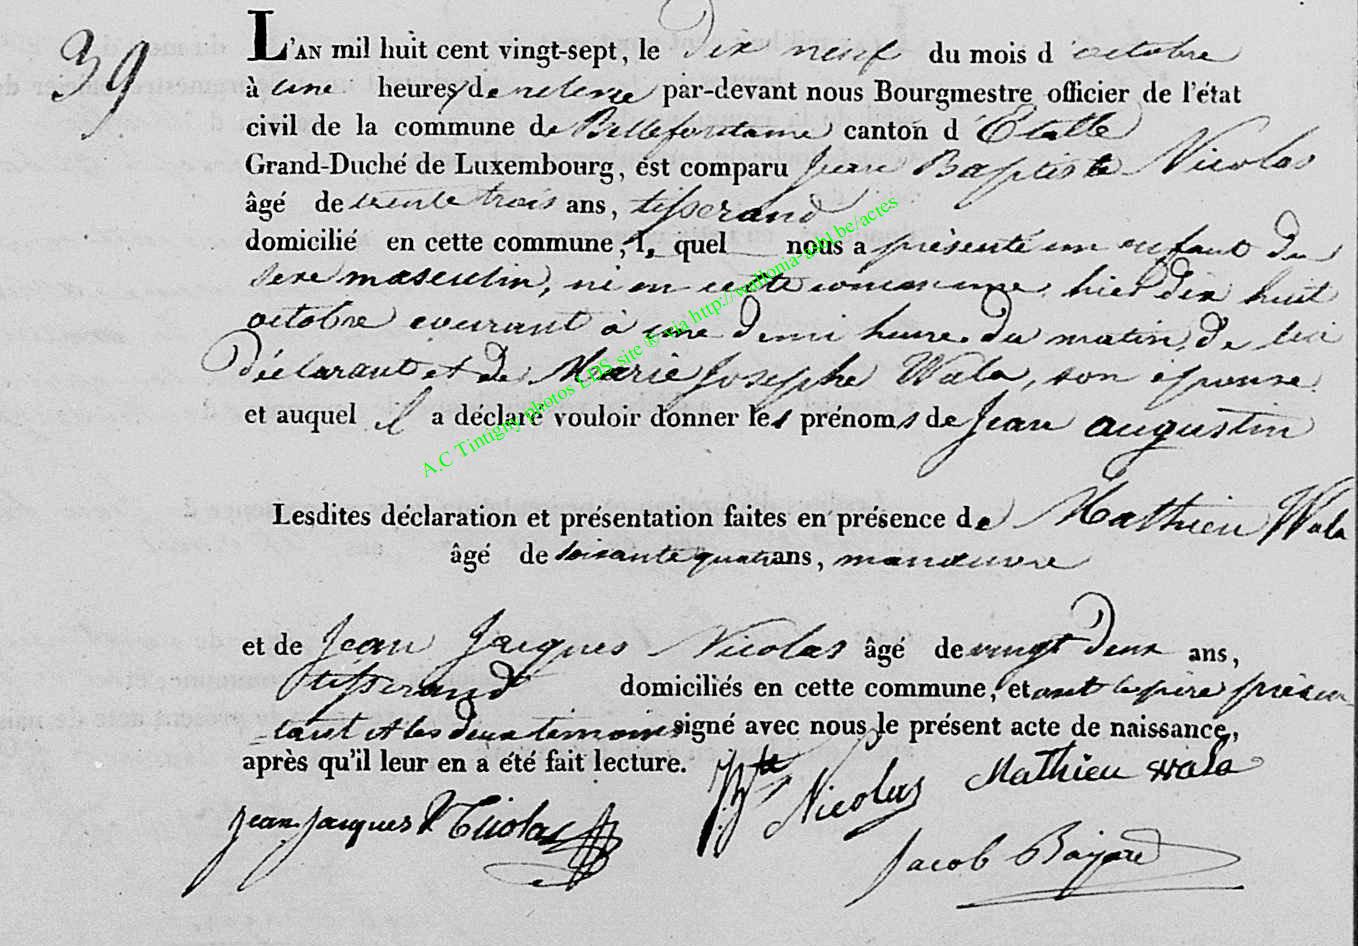 39
L'AN mil huit cent vingt-sept, le dix neuf du mois d'octobre
à une heures de relevée par-devant nous Bourgmestre officier de l'état
civil de la commune de Bellefontaine canton d'Etalle
Grand-Duché de Luxembourg, est comparu Jean Baptiste Nicolas
âgé de trente trois ans, tisserand
domicilié en cette commune, lequel nous a présenté un enfant du
sexe masculin, né en cette commune hier dix huit
octobre courant à une demi heure du matin, de lui
déclarant et de Marie Josephe Wala, son épouse
et auquel il a déclaré vouloir donner les prénoms de Jean augustin
Lesdites déclaration et présentation faites en présence de Mathieu Wala
âgé de soixante quatre ans, manœuvre
et de Jean Jacques Nicolas âgé de vingt deux ans,
tisserand domiciliés en cette commune, et ont le père présen-
-tant et les deux témoins signé avec nous le présent acte de naissance,
après qu'il leur en a été fait lecture.
JBte Nicolas Mathieu wala
jean jacques Nicolas
Jacob Bayard
A.C Tintigny photos LDS site ® via http://wallonia-asbl.be/actes